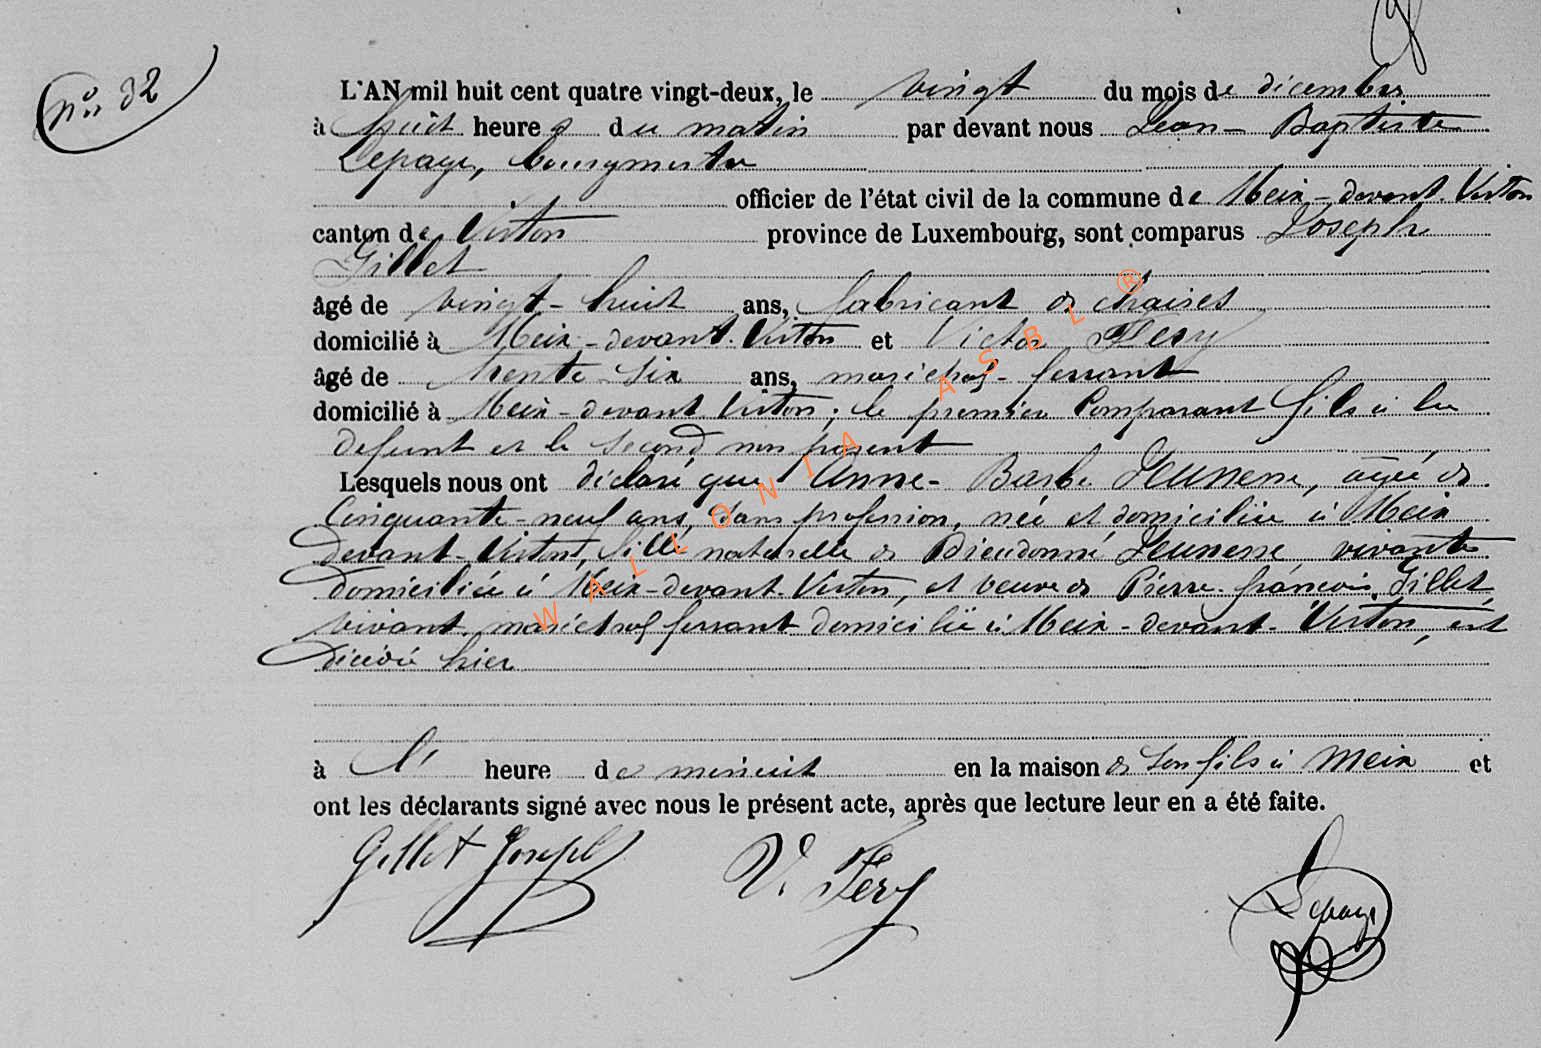 N° 32
L'AN mil huit cent quatre vingt-deux, le vingt du mois de décembre
à huit heures du matin par devant nous Jean-Baptiste
Lepage, bourgmestre
officier de l'état civil de la commune de Meix-devant-Virton
canton de Virton province de Luxembourg, sont comparus Joseph
Gillet
âgé de vingt-huit ans, fabricant de chaises
domicilié à Meix-devant-Virton et Victor Fery
âgé de trente-six ans, maréchal-ferrant
domicilié à Meix-devant Virton; le premier Comparant fils à la
defunte et le second non parent
Lesquels nous ont déclaré que Anne-Barbe Jeunesse, agée de
Cinquante-neuf ans, sans profession, née et domiciliée à Meix
devant-Virton, fille naturelle de Dieudonné Jeunesse vivante
domiciliée à Meix-devant-Virton, et veuve de Pierre-françois Gillet
vivant maréchal ferrant domicilié à Meix-devant-Virton, est
décédée hier
à l' heure de minuit en la maison de son fils à Meix et
ont les déclarants signé avec nous le présent acte, après que lecture leur en a été faite.
Gillet Joseph V. Fery Lepage
WALLONIA ASBL ®